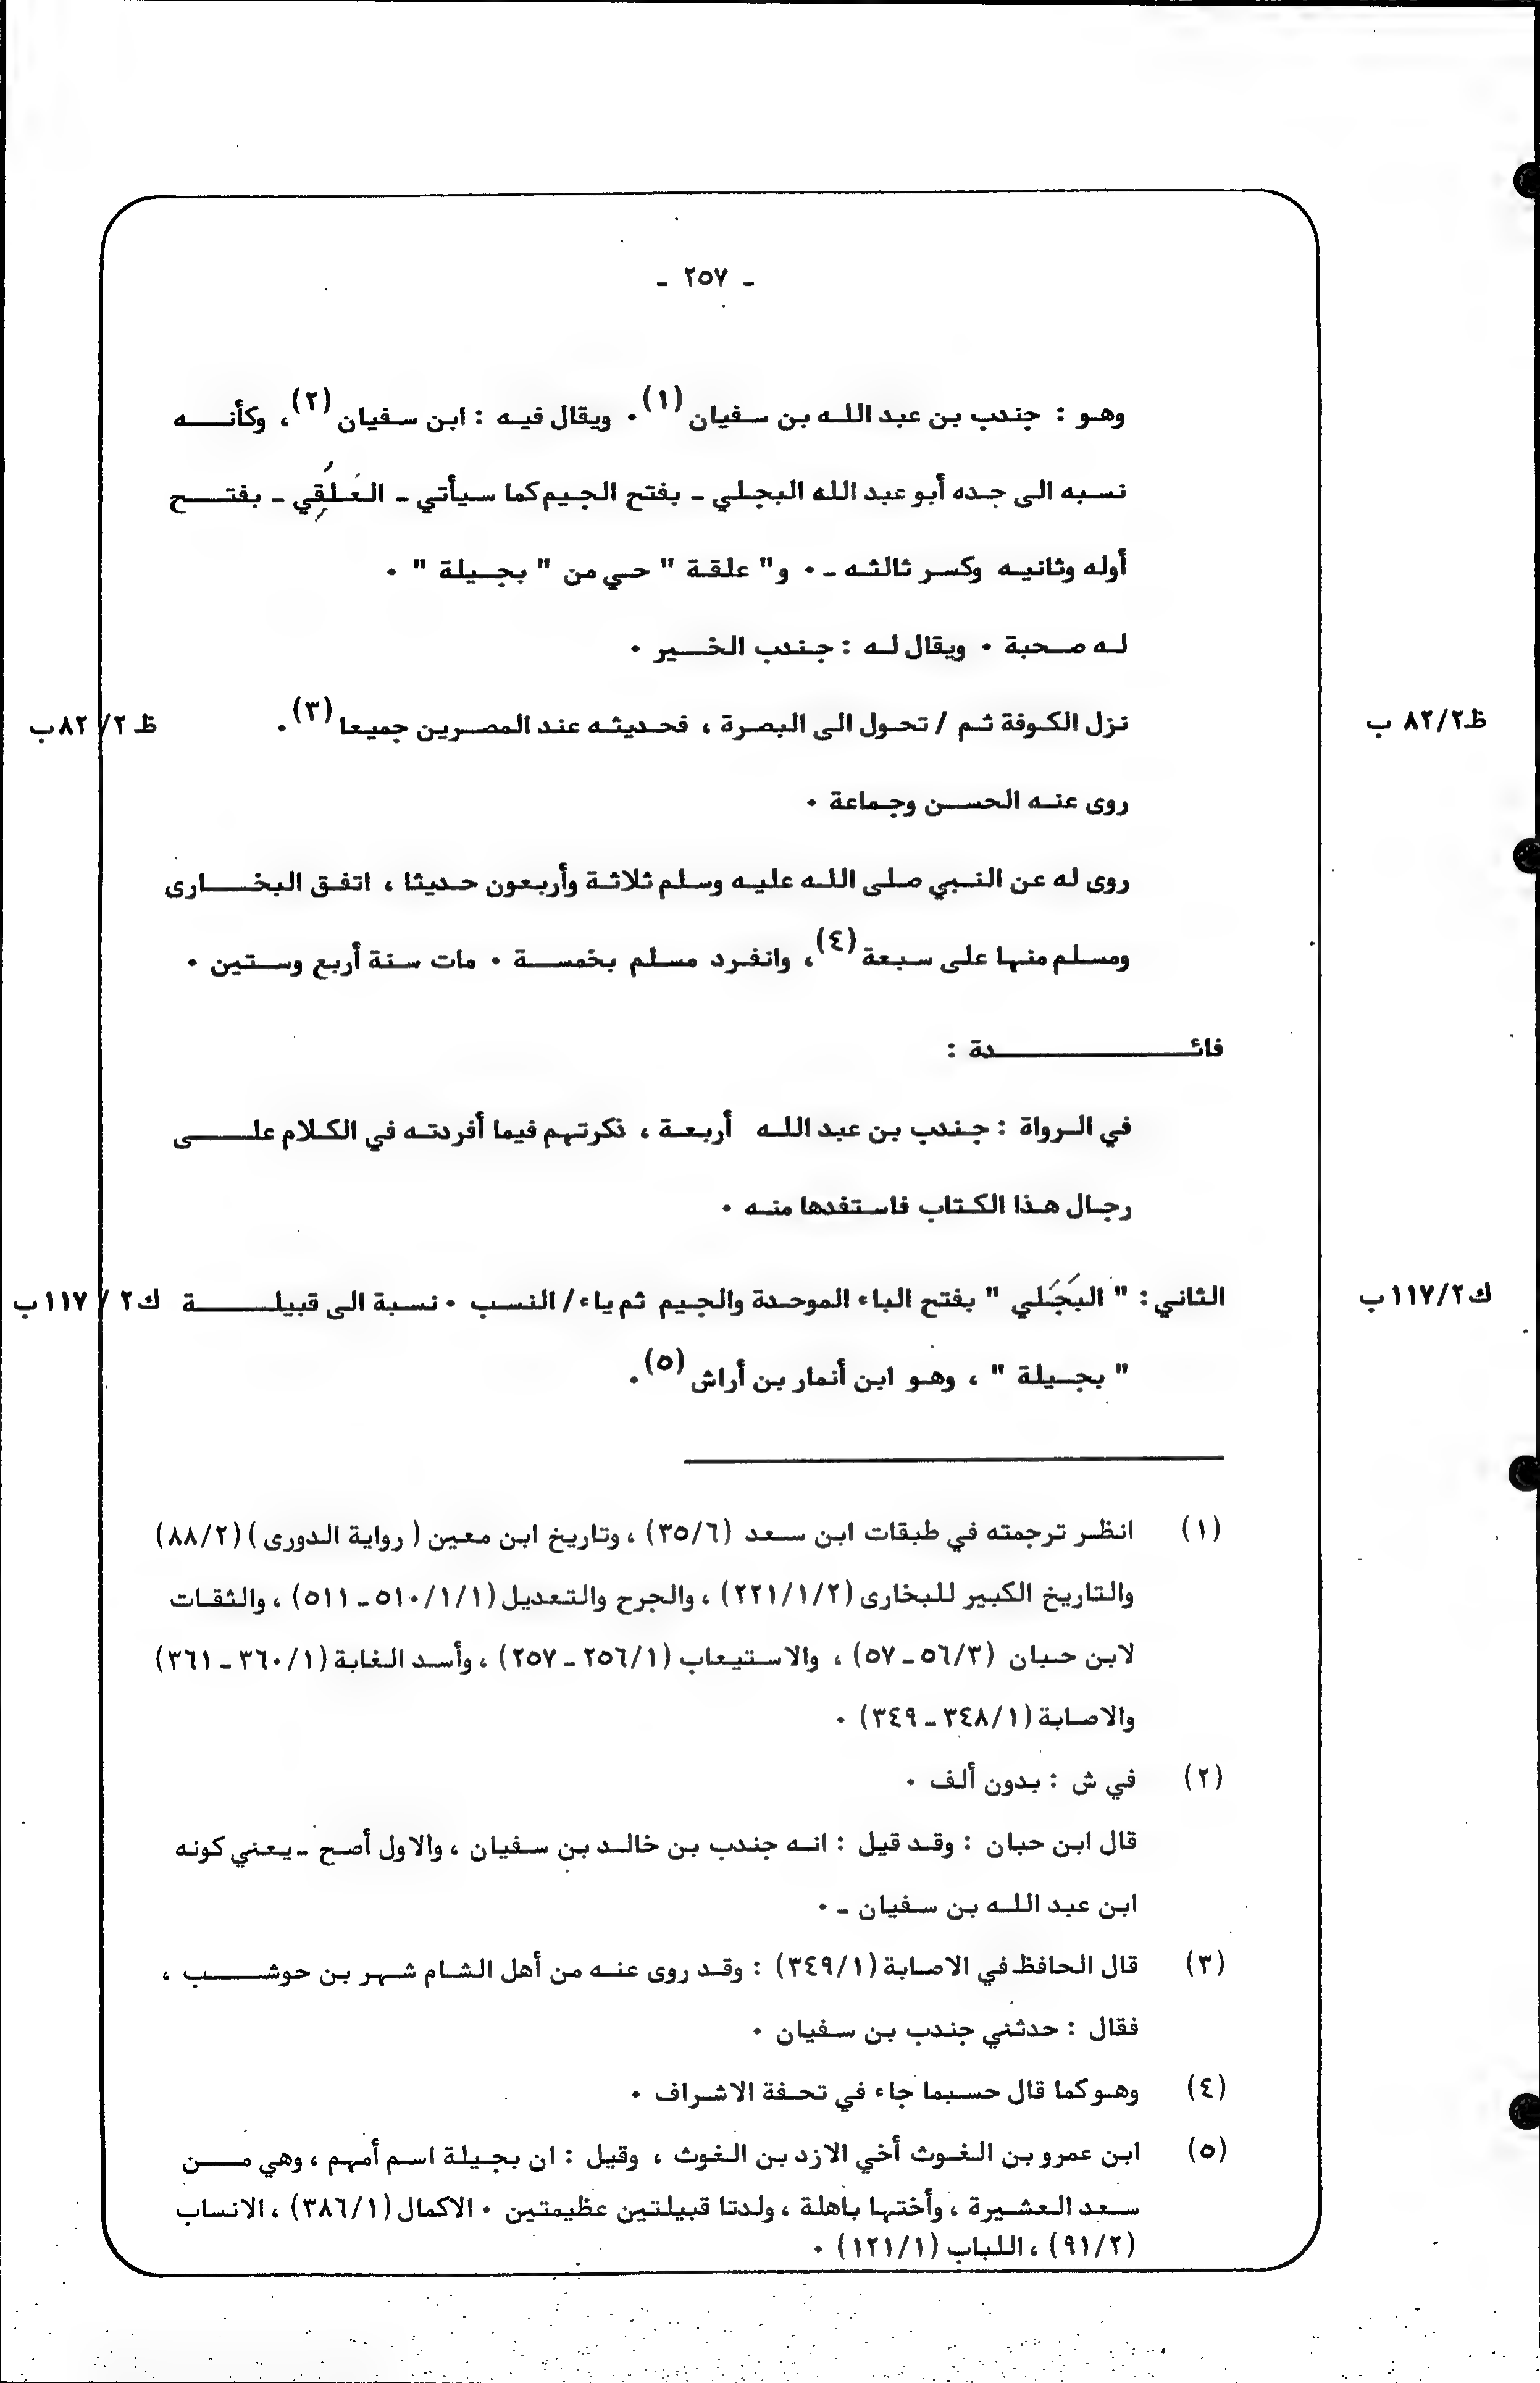 - ٢٥٧ -
وهو : جندب بن عبد الله بن سفيان (١). ويقال فيه : ابن سفيان (٢)، وكأنه
نسبه الى جده أبو عبد الله البجلي - بفتح الجيم كما سيأتي - العَلَقِي - بفتح
أوله وثانيه وكسر ثالثه - . و" علقة " حي من " بجيلة " .
له صحبة . ويقال له : جندب الخير .
ظ٨٢/٢ ب نزل الكوفة ثم / تحول الى البصرة ، فحديثه عند المصرين جميعا (٣). ظ ٢ /٨٢ب
روى عنه الحسن وجماعة .
روى له عن النبي صلى الله عليه وسلم ثلاثة وأربعون حديثا ، اتفق البخارى
ومسلم منها على سبعة (٤)، وانفرد مسلم بخمسة . مات سنة أربع وستين .
فائدة :
في الرواة : جندب بن عبد الله أربعة ، ذكرتهم فيما أفردته في الكلام على
رجال هذا الكتاب فاستفدها منه .
ك١١٧/٢ب الثاني : " البَجَلي " بفتح الباء الموحدة والجيم ثم ياء / النسب . نسبة الى قبيلة ك٢ / ١١٧ب
" بجيلة " ، وهو ابن أنمار بن أراش (٥).
(١) انظر ترجمته في طبقات ابن سعد (٣٥/٦) ، وتاريخ ابن معين ( رواية الدورى ) (٨٨/٢)
والتاريخ الكبير للبخارى (٢٢١/١/٢) ، والجرح والتعديل (٥١٠/١/١ - ٥١١) ، والثقات
لابن حبان (٥٦/٣ - ٥٧) ، والاستيعاب (٢٥٦/١ - ٢٥٧) ، وأسد الغابة (٣٦٠/١ - ٣٦١)
والاصابة (٣٤٨/١ - ٣٤٩) .
(٢) في ش : بدون ألف .
قال ابن حبان : وقد قيل : انه جندب بن خالد بن سفيان ، والاول أصح - يعني كونه
ابن عبد الله بن سفيان - .
(٣) قال الحافظ في الاصابة (٣٤٩/١) : وقد روى عنه من أهل الشام شهر بن حوشب ،
فقال : حدثني جندب بن سفيان .
(٤) وهو كما قال حسبما جاء في تحفة الاشراف .
(٥) ابن عمرو بن الغوث أخي الازد بن الغوث ، وقيل : ان بجيلة اسم أمهم ، وهي من
سعد العشيرة ، وأختها باهلة ، ولدتا قبيلتين عظيمتين . الاكمال (٣٨٦/١) ، الانساب
(٩١/٢) ، اللباب (١٢١/١) .